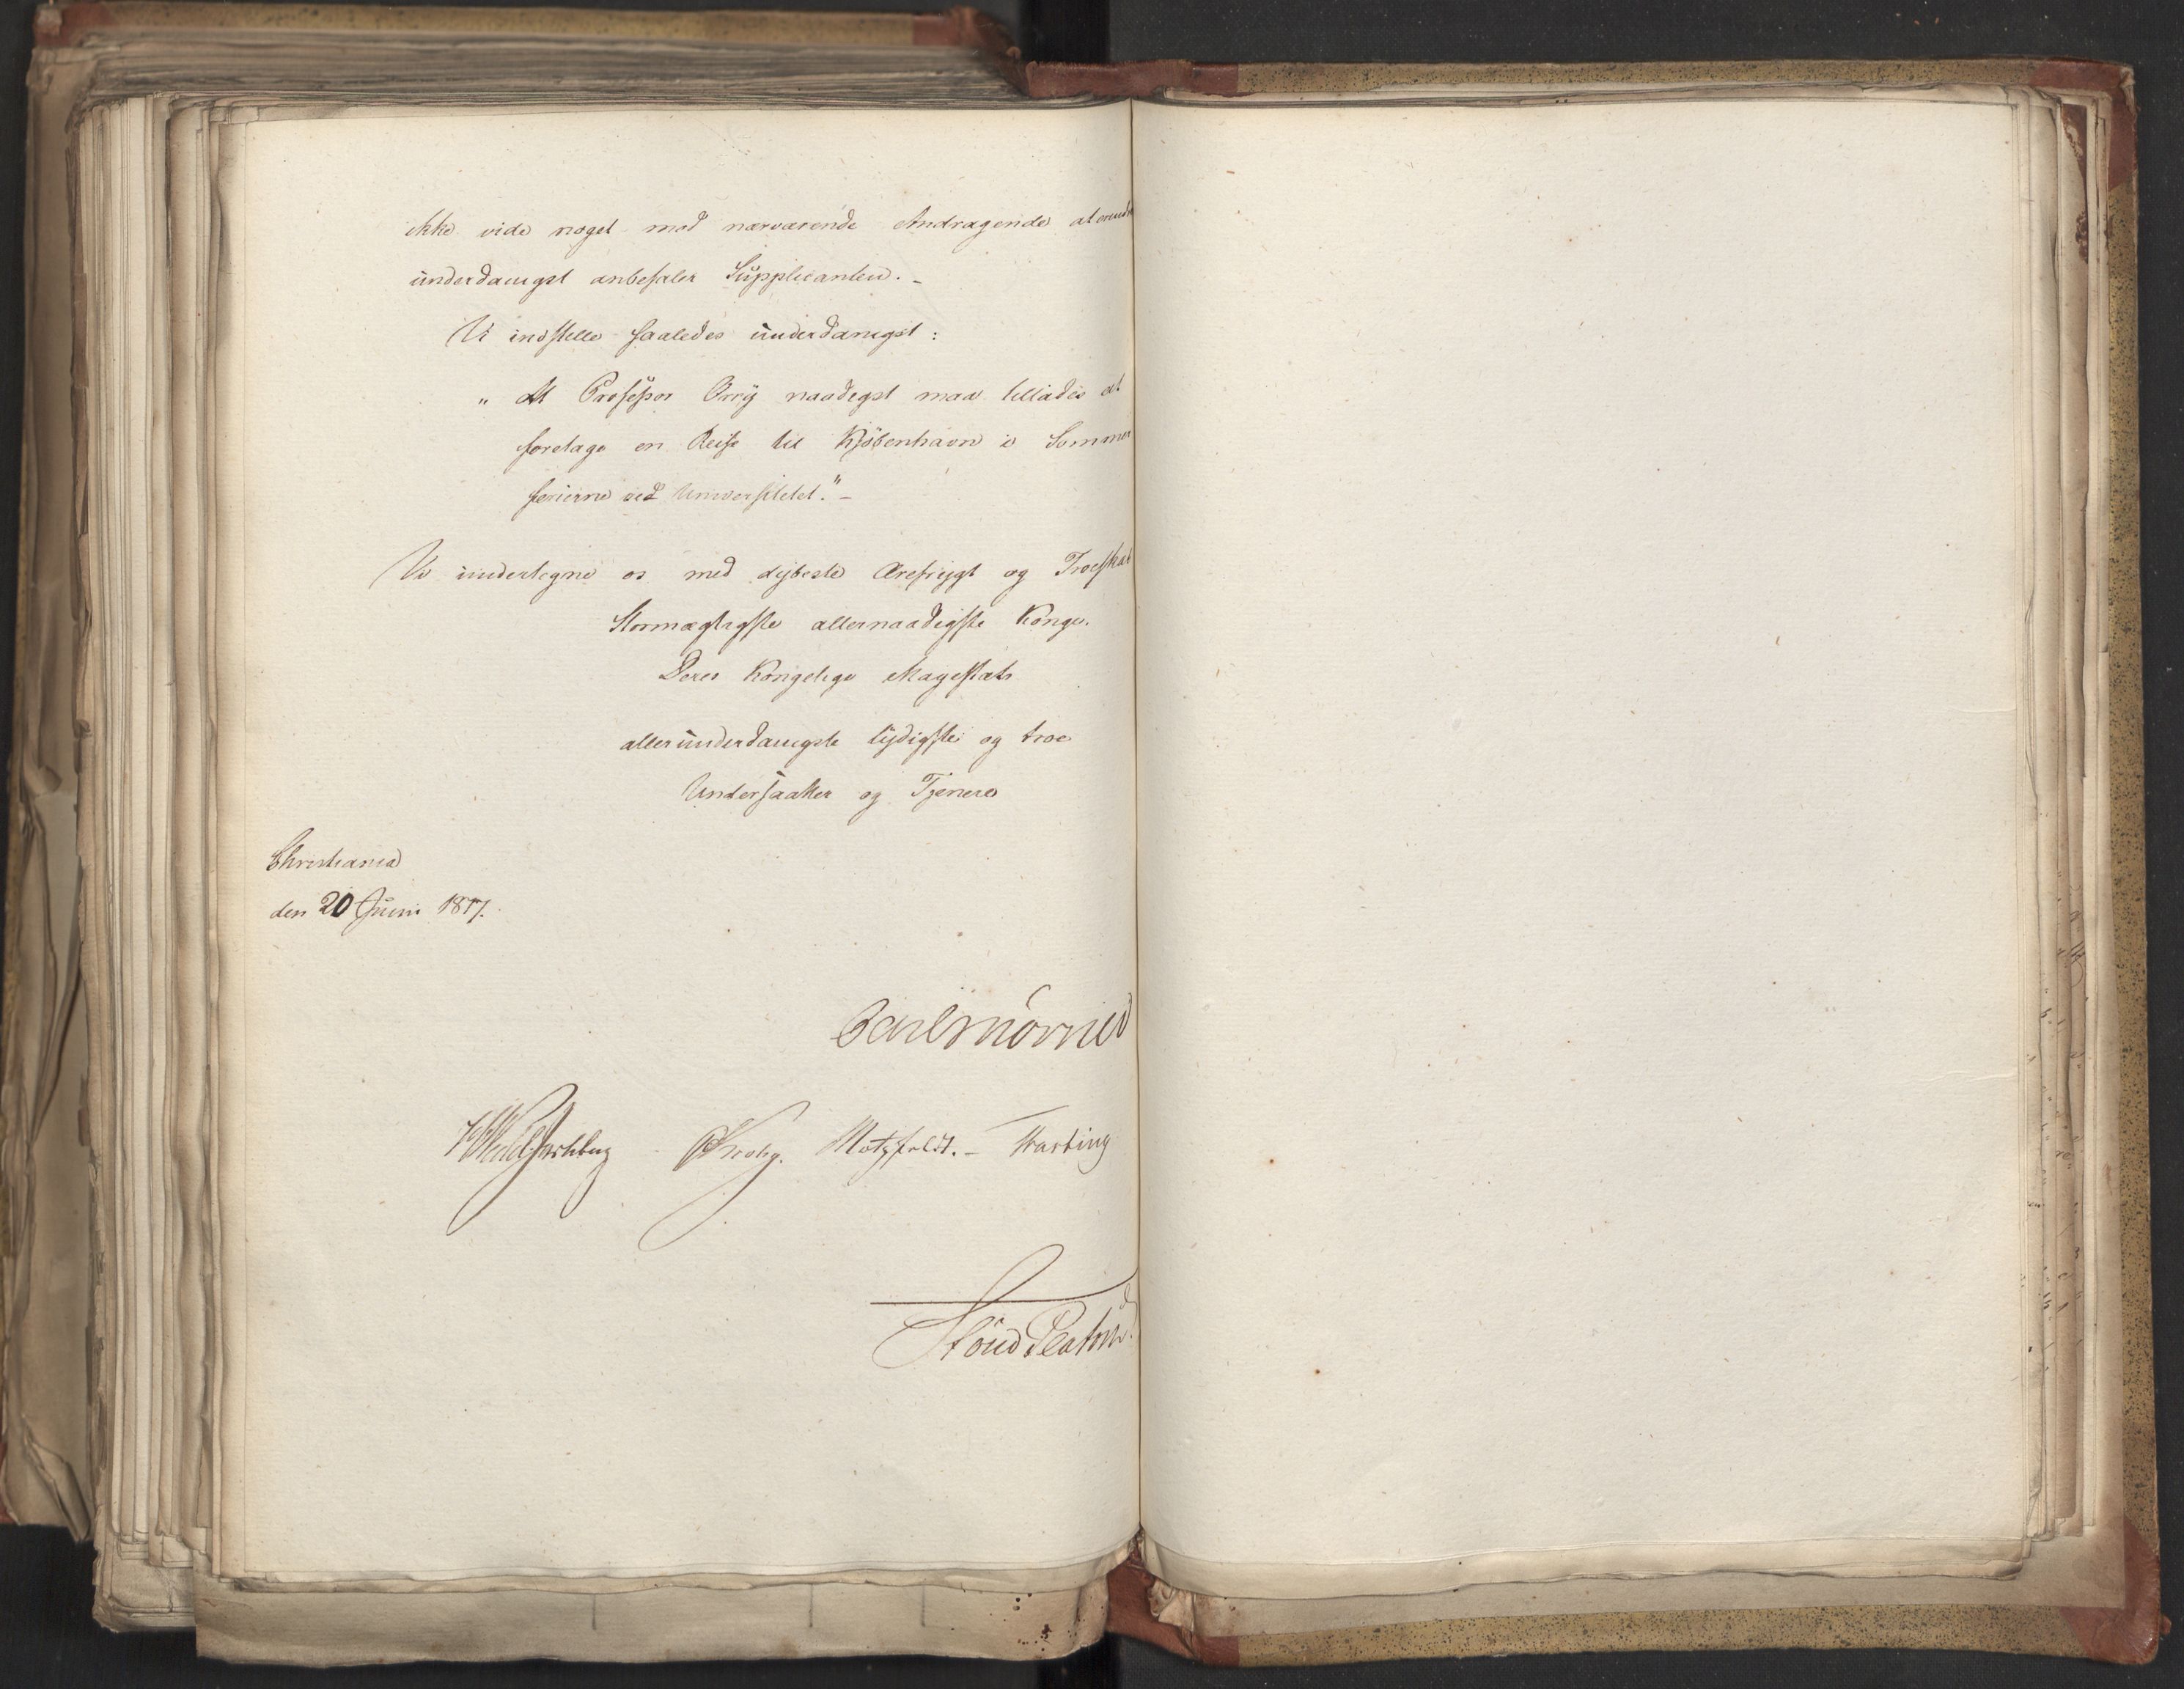 ikke vide noget mod nærværende Andragende at erindre
underdanigst anbefaler Supplicanten. -
Vi indstille saaledes underdanigst:
" At Professor Orry naadigst maa tillades at
foretage en Reise til Kjöbenhavn i Sommer
ferierne ved Universitetet." -
Vi undertegne os med dybeste Ærefrygt og Troeskab
Stormægtigste allernaadigste Konge.
Deres Kongelige Majestæts
allerunderdanigste lydigste og troe
Undersaatter og Tjenere
Christiania
den 20 Juni 1817.
Carl Mörner
Wedel Jarlsberg Krohg. Motzfeldt. - Hasting
Stoud Platou